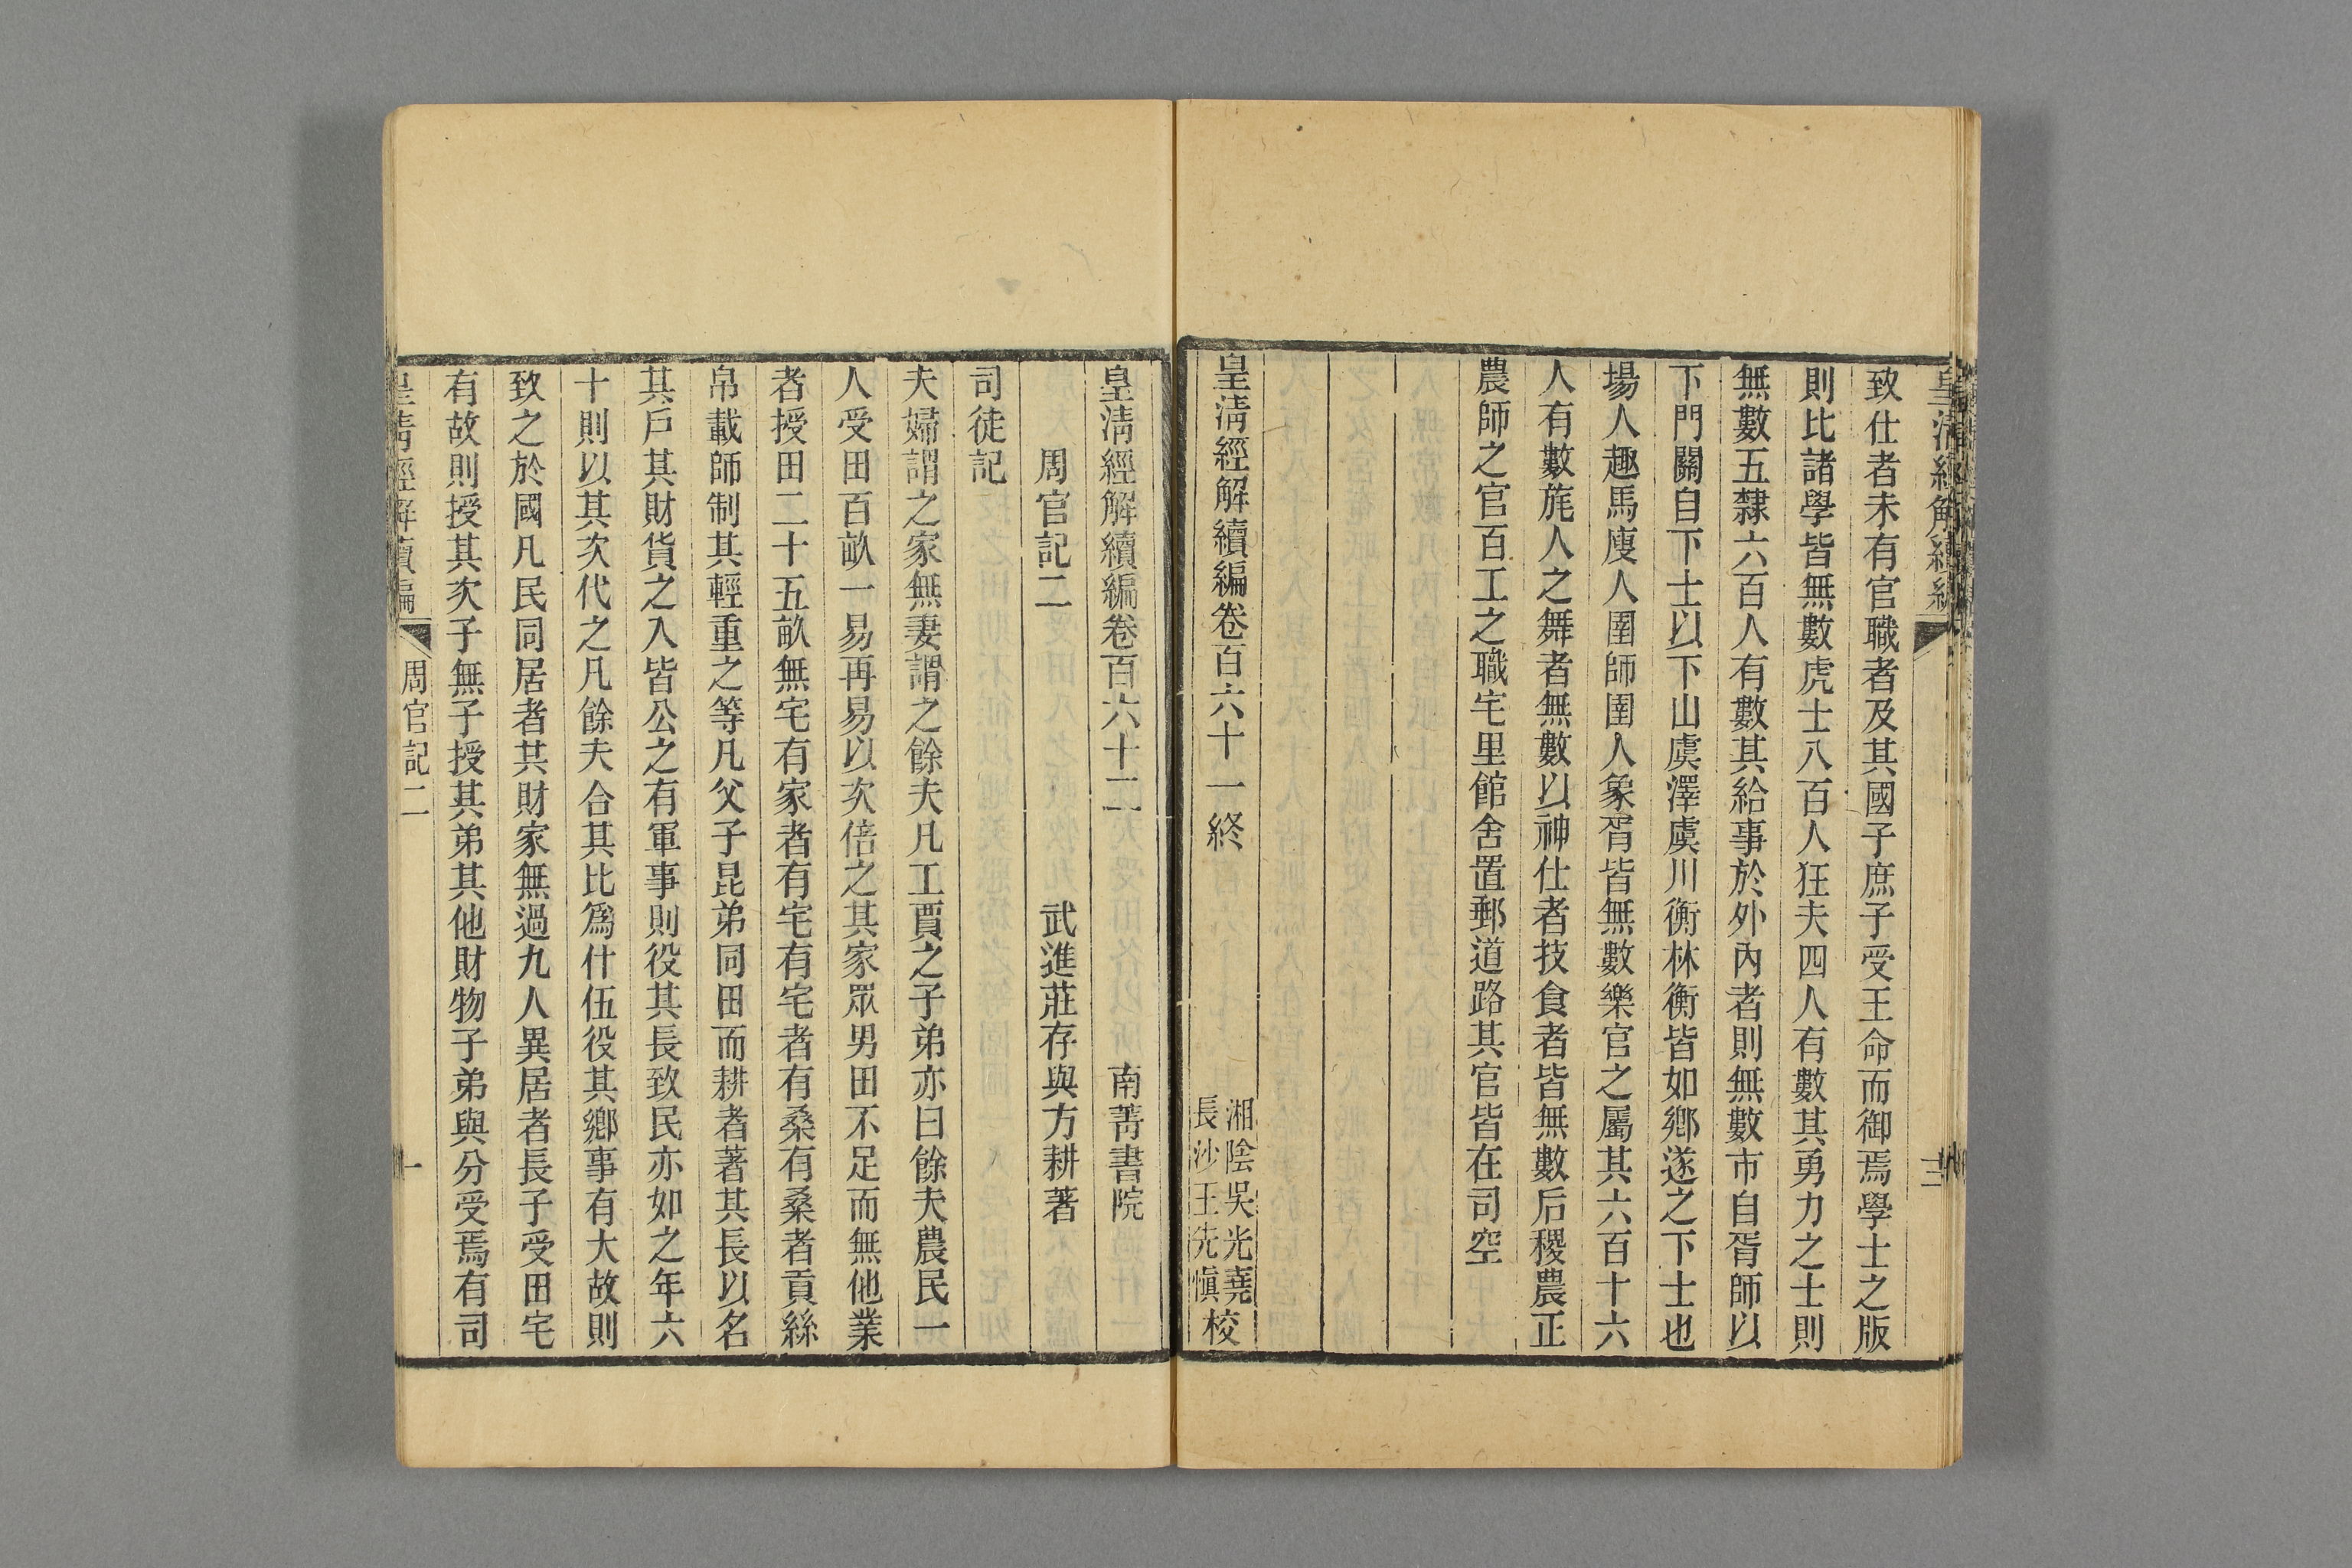 皇清經解續編
三
致仕者未有官職者及其國子庶子受王命而御焉學士之版
則比諸學皆無數虎士八百人狂夫四人有數其勇力之士則
無數五隸六百人有數其給事於外內者則無數市自胥師以
下門關自下士以下山虞澤虞川衡林衡皆如鄉遂之下士也
場人趣馬廋人圉師圉人象胥皆無數樂官之屬其六百十六
人有數旄人之舞者無數以神仕者技食者皆無數后稷農正
農師之官百工之職宅里館舍置郵道路其官皆在司空
皇清經解續編卷百六十一終
湘陰吳光堯
長沙王先愼
校
皇清經解續編卷百六十二
南菁書院
周官記二
武進莊存與方耕著
司徒記
夫婦謂之家無妻謂之餘夫凡工賈之子弟亦曰餘夫農民一
人受田百畝一易再易以次倍之其家眾男田不足而無他業
者授田二十五畝無宅有家者有宅有宅者有桑有桑者貢絲
帛載師制其輕重之等凡父子昆弟同田而耕者著其長以名
其戶其財貨之入皆公之有軍事則役其長致民亦如之年六
十則以其次代之凡餘夫合其比爲什伍役其鄉事有大故則
致之於國凡民同居者其財家無過九人異居者長子受田宅
有故則授其次子無子授其弟其他財物子弟與分受焉有司
皇清經解續編
周官記二
一